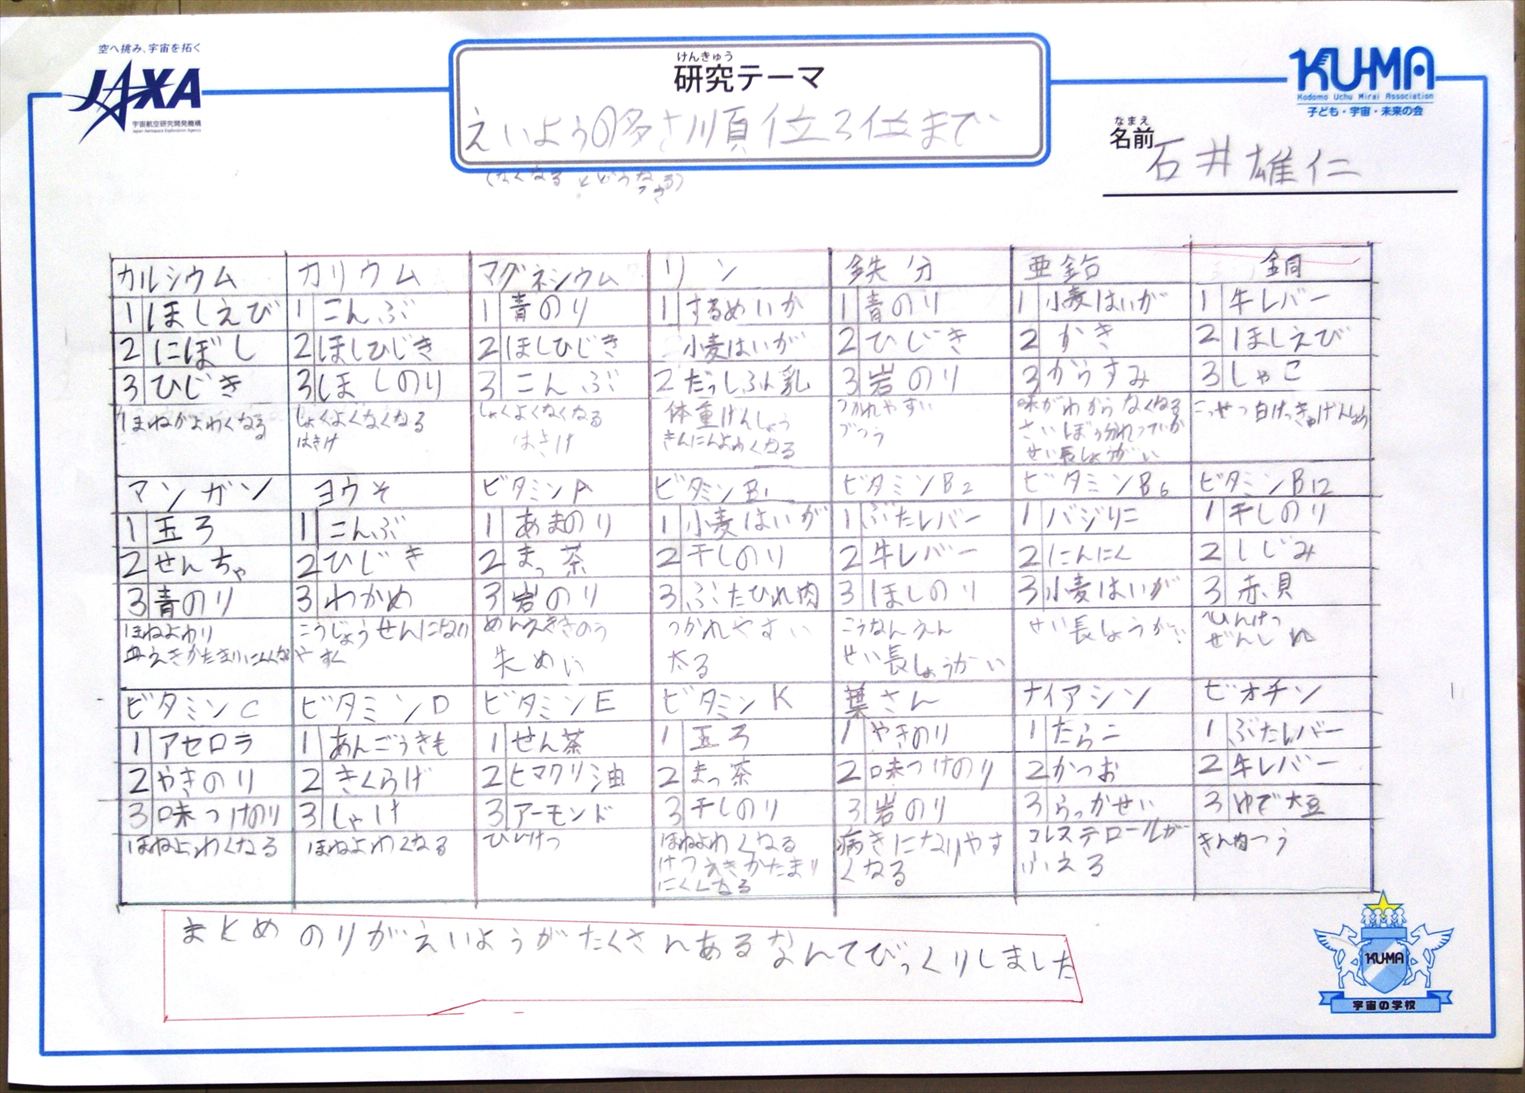 空へ挑み、宇宙を拓く
JAXA
宇宙航空研究開発機構
Japan Aerospace Exploration Agency
けんきゅう
研究テーマ
えいようの多さ順位3位まで
(なくなるとどうなる)
KU-MA
Kodomo Uchu Mirai Association
子ども・宇宙・未来の会
なまえ
名前 石井雄仁
カルシウム カリウム マグネシウム リン 鉄分 亜鉛 銅
1 ほしえび 1 こんぶ 1 青のり 1 するめいか 1 青のり 1 小麦はいが 1 牛レバー
2 にぼし 2 ほしひじき 2 ほしひじき 小麦はいが 2 ひじき 2 かき 2 ほしえび
3 ひじき 3 ほしのり 3 こんぶ 2 だっしふん乳 3 岩のり 3 からすみ 3 しゃこ
ほねがよわくなる しょくよくなくなる しょくよくなくなる 体重げんしょう つかれやすい 味がわからなくなる こっせつ白けっきゅうげんしょう
はきけ はきけ きんにくよわくなる
せい長しょうがい
マンガン ヨウそ ビタミンA ビタミンB1 ビタミンB2 ビタミンB6 ビタミンB12
1 玉ろ 1 こんぶ 1 あまのり 1 小麦はいが 1 ぶたレバー 1 バジリコ 1 干しのり
2 せんちゃ 2 ひじき 2 まっ茶 2 干しのり 2 牛レバー 2 にんにく 2 しじみ
3 青のり 3 わかめ 3 岩のり 3 ぶたひれ肉 3 ほしのり 3 小麦はいが 3 赤貝
ほねよわり こうじょうせんになり めんえききのう つかれやすい こうなんえん せい長しょうがい ひんけつ
血えきかたまりにくくな やすく 失めい 太る せい長しょうがい
ビタミンC ビタミンD ビタミンE ビタミンK 葉さん ナイアシン ビオチン
1 アセロラ 1 あんこうきも 1 せん茶 1 玉ろ 1 やきのり 1 たらこ 1 ぶたレバー
2 やきのり 2 きくらげ 2 ヒマワリ油 2 まっ茶 2 味つけのり 2 かつお 2 牛レバー
3 味つけのり 3 しゃけ 3 アーモンド 3 干しのり 3 岩のり 3 らっかせい 3 ゆで大豆
ほねよわくなる ほねよわくなる ひんけつ ほねよわくなる 病きになりやす コレステロールが きん肉つう
けつえきかたまり くなる ふえる
にくくなる
まとめ のりがえいようがたくさんあるなんてびっくりしました
KU-MA
宇宙の学校